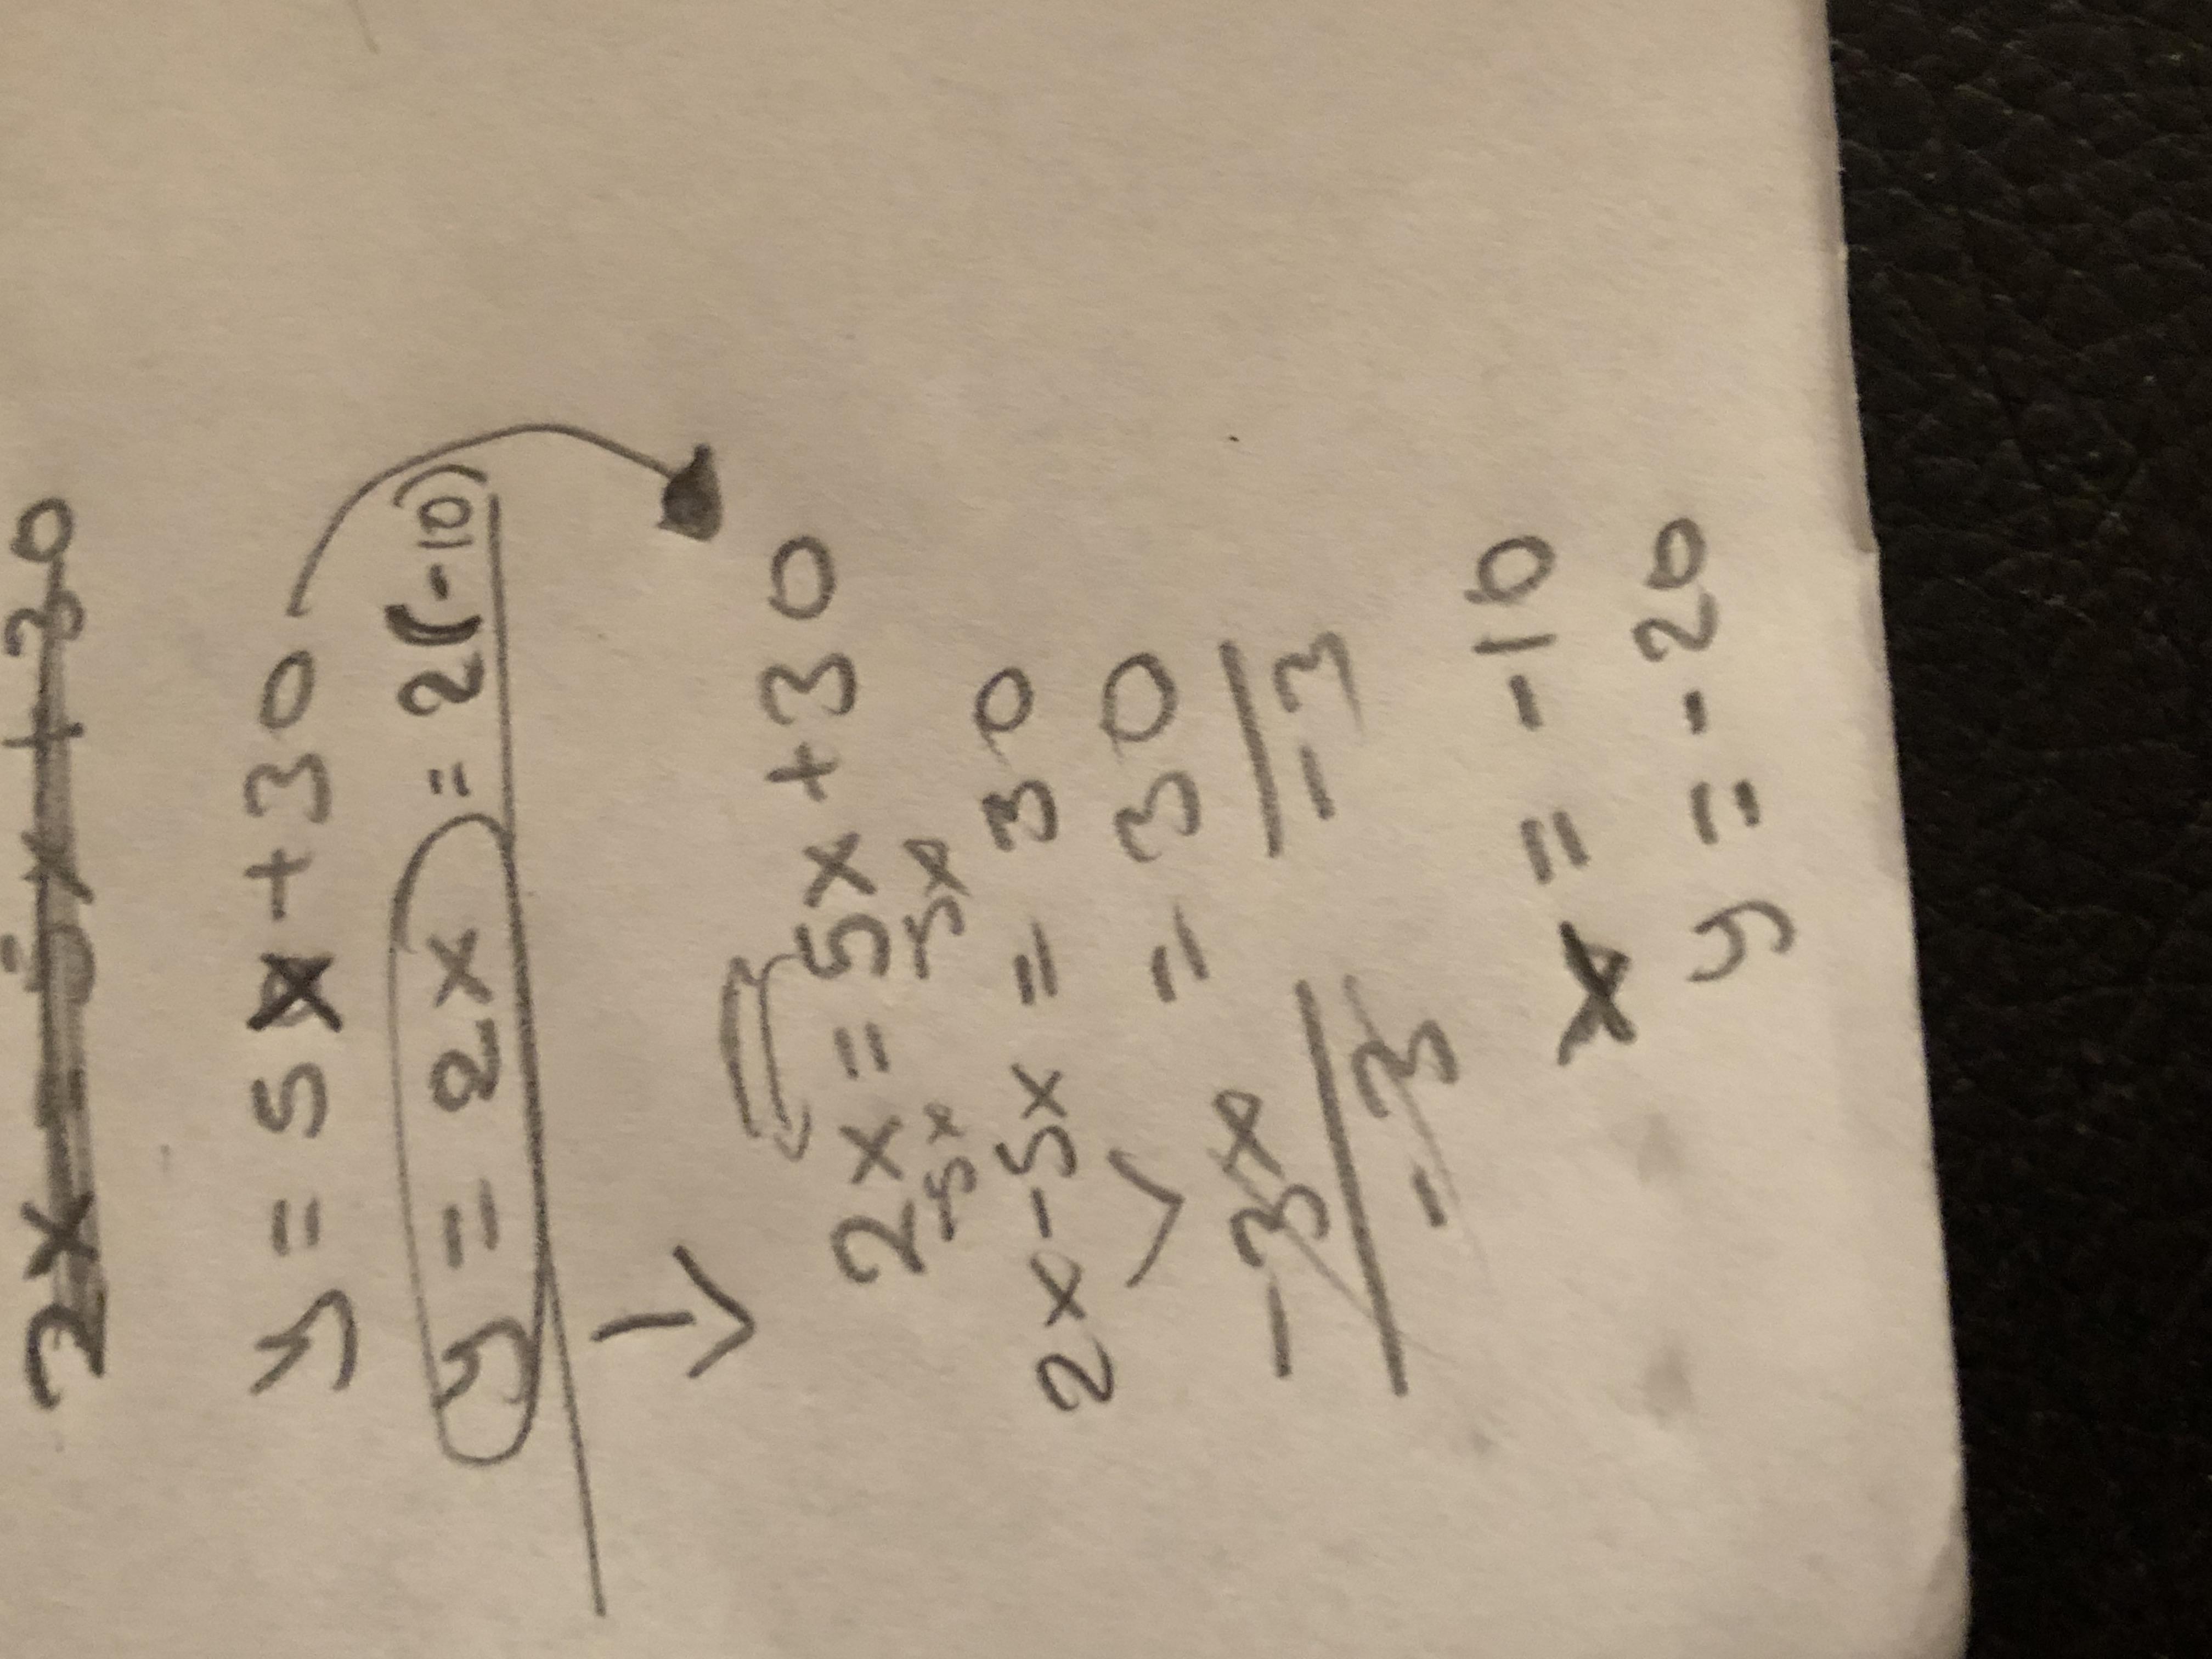 2x = 5x + 30
y = 5x + 30
y = 2x = 2(-10)
2x = 5x + 30
-5x -5x
2x - 5x = 30
-3x = 30
-3 -3
x = -10
y = -20